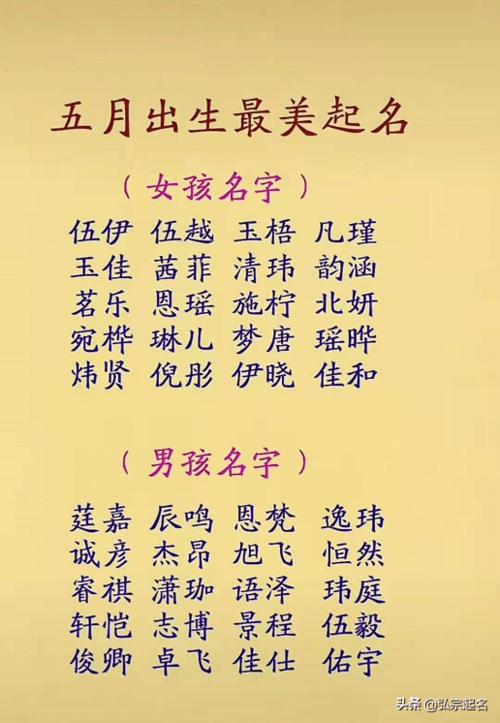 五月出生最美起名
（女孩名字）
伍伊 伍越 玉梧 凡瑾
玉佳 茜菲 清玮 韵涵
茗乐 恩瑶 施柠 北妍
宛桦 琳儿 梦唐 瑶晔
炜贤 倪彤 伊晓 佳和
（男孩名字）
莛嘉 辰鸣 恩梵 逸玮
诚彦 杰昂 旭飞 恒然
睿祺 潇珈 语泽 玮庭
轩恺 志博 景程 伍毅
俊卿 卓飞 佳仕 佑宇
头条 @弘宗起名